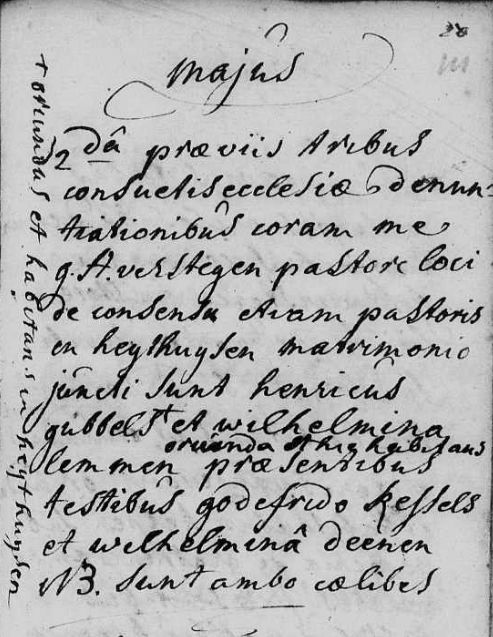 28
111
majus
2dâ præviis tribus
consuetis ecclesiæ denun-
tiationibus coram me
g. A. verstegen pastore loci
de consensu etiam pastoris
in heythuysen matrimonio
juncti sunt henricus
gubbels + et wilhelmina
oriunda et hic habitans
lemmen præsentibus
testibus godefrido kessels
et wilhelminâ deenen
NB. sunt ambo cælibes
+ oriundus et habitans in heythuysen